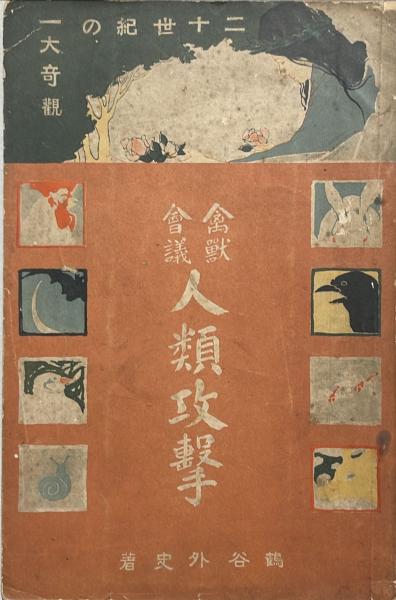 二十世紀の
一大奇觀
禽獸
會議
人類攻擊
鶴谷外史著